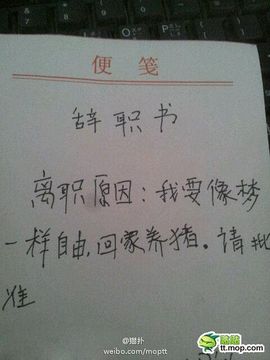 便笺
辞职书
离职原因：我要像梦
一样自由，回家养猪。请批
准
@猫扑
weibo.com/moptt
猫扑
tt.mop.com